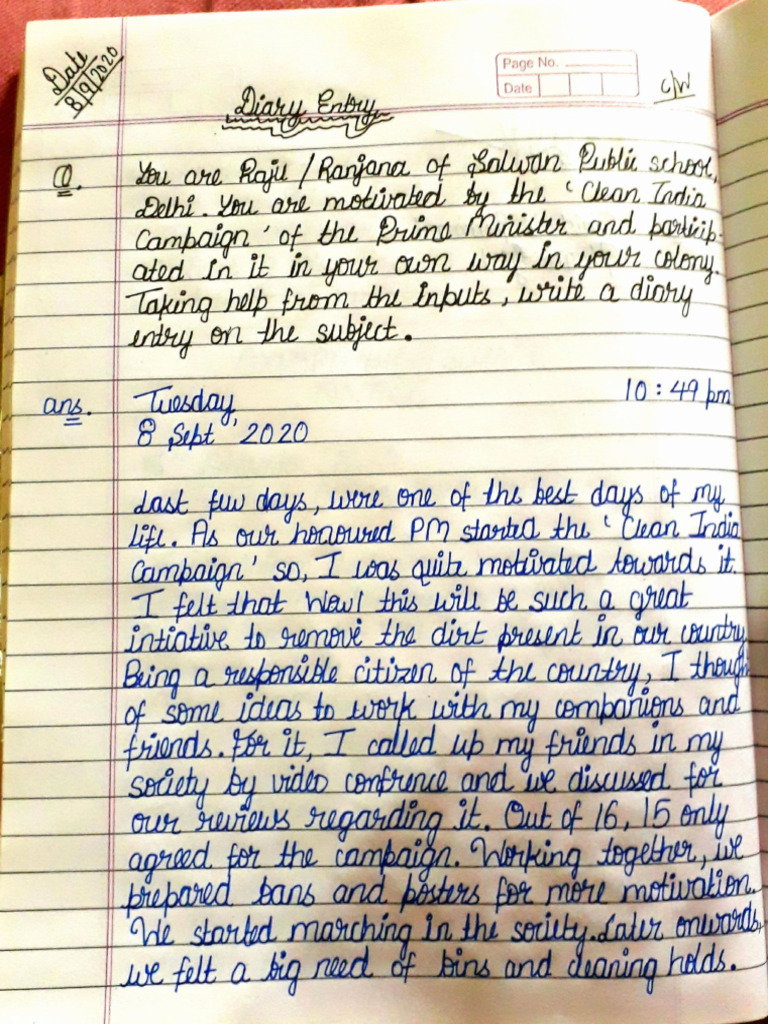 Date
8/9/2020
Page No.
Date
C/W
Diary Entry
Q. You are Raju / Ranjana of Salwan Public school,
Delhi. You are motivated by the 'Clean India
Campaign' of the Prime Minister and particip-
ated in it in your own way in your colony.
Taking help from the inputs, write a diary
entry on the subject.
ans. Tuesday, 10:49 pm
8 Sept' 2020
Last few days, were one of the best days of my
life. As our honoured PM started the 'Clean India
Campaign' so, I was quite motivated towards it.
I felt that Wow! this will be such a great
intiative to remove the dirt present in our country.
Being a responsible citizen of the country, I though
of some ideas to work with my companions and
friends. For it, I called up my friends in my
society by video confrence and we discussed for
our reviews regarding it. Out of 16, 15 only
agreed for the campaign. Working together, we
prepared bans and posters for more motivation.
We started marching in the society. Later onwards,
we felt a big need of bins and cleaning holds.